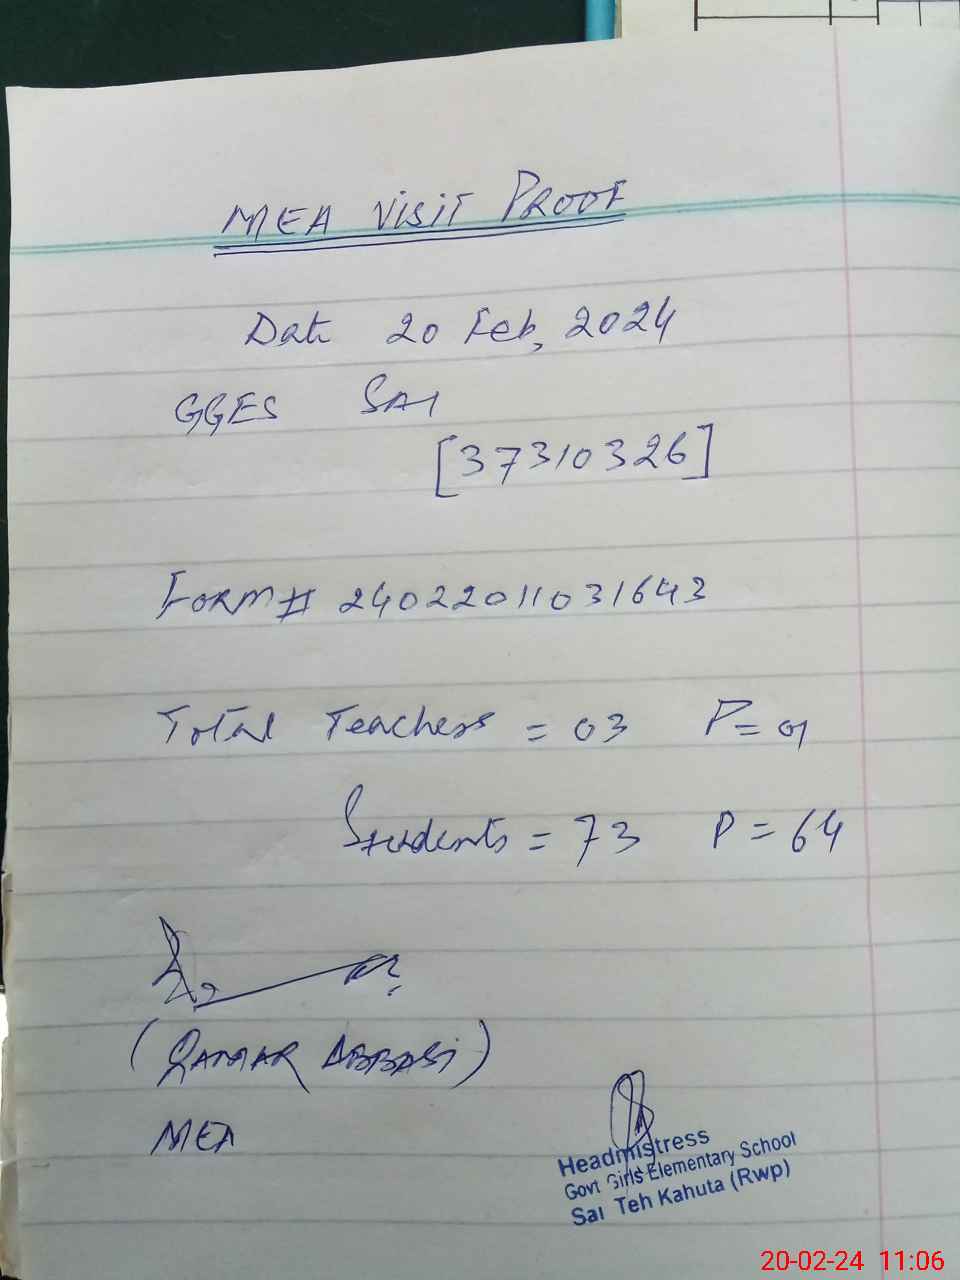 MEA VISIT PROOF
Date 20 Feb, 2024
GGES SAI
[37310326]
FORM# 24022011031643
Total Teachers = 03 P= 01
Students = 73 P = 64
(QAMAR ABBASI)
MEA
Headmistress
Govt Girls Elementary School
Sai Teh Kahuta (Rwp)
20-02-24 11:06